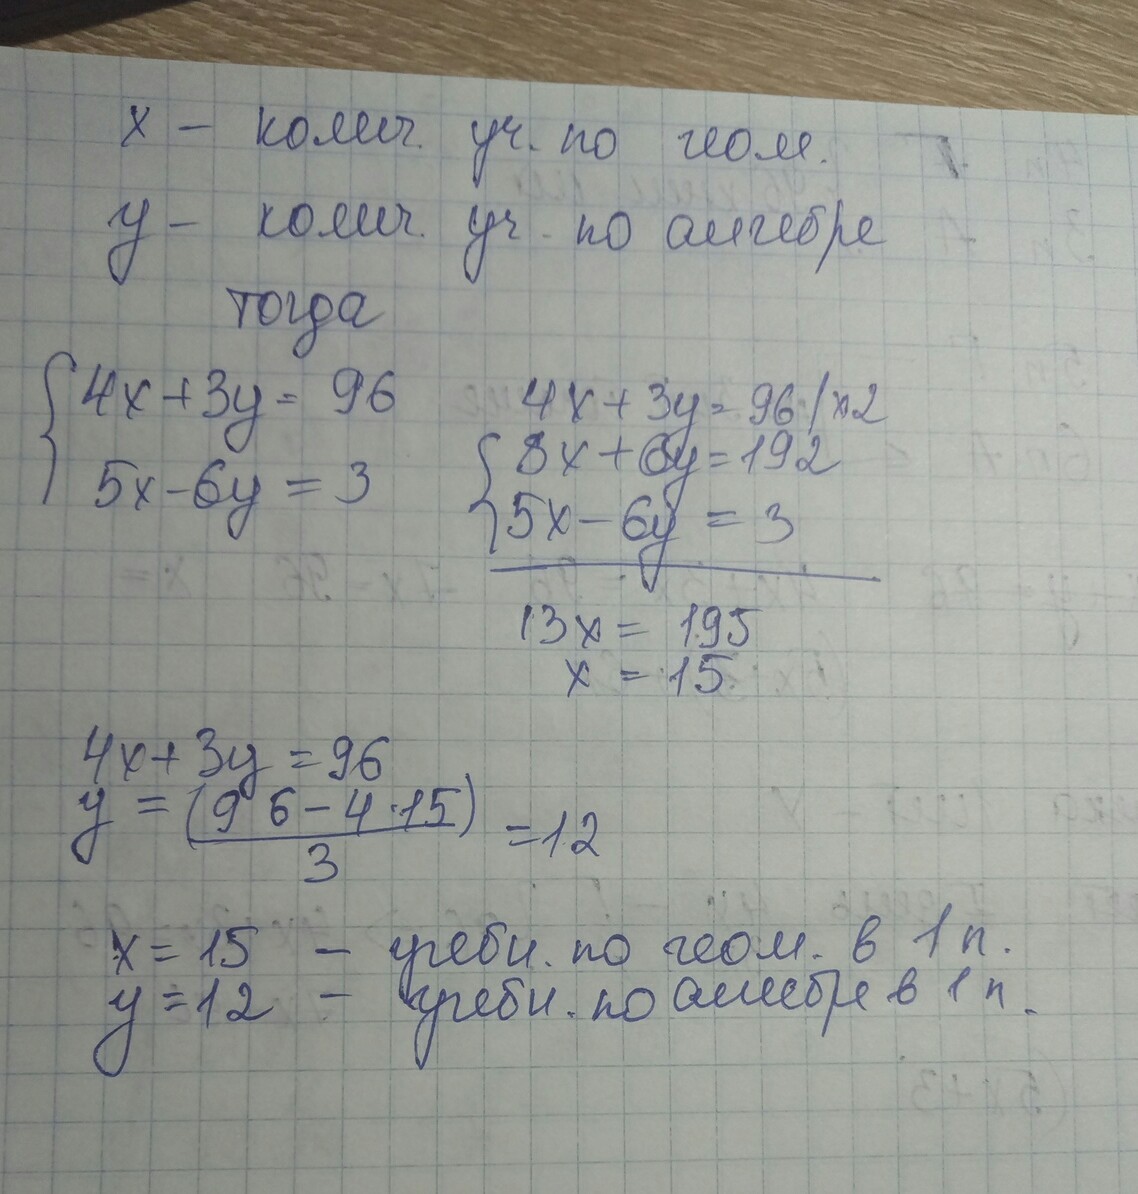 x - колич. уч. по геом.
y - колич. уч. по алгебре
тогда
4x+3y= 96
5x-6y = 3
4x+3y=96/x2
8x+6y=192
5x-6y = 3
13x= 195
x = 15
4x+3y=96
y = (96-4·15)
3
=12
x= 15 - учебн. по геом. в 1 п.
y =12 - учебн. по алгебре в 1 п.